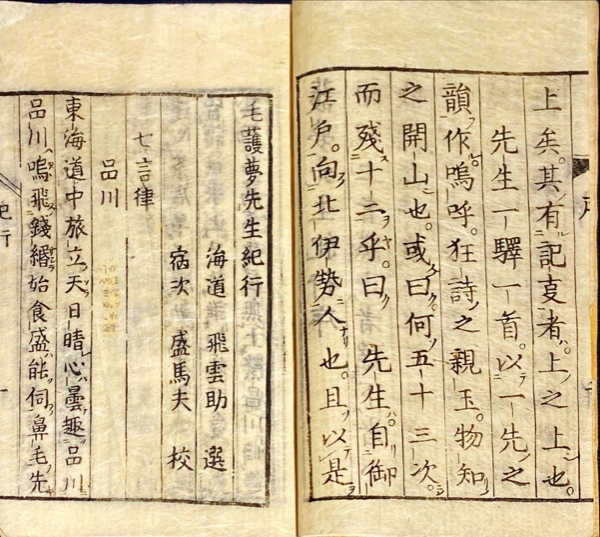 上矣。其有記叓者。上之上也。
先生一驛一首。以一先之
韻作嗚呼。狂詩之親玉。物知
之開山也。或曰何五十三次。
而殘十二乎。曰 先生自御
江戸。向北伊勢人也。且以是
毛護夢先生紀行
海道 飛雲助 選
宿次 盛馬夫 校
七言律
品川
東海道中旅立天日晴心曇趣品川
品川嗚飛錢緡始食盛能伺鼻毛先
紀行